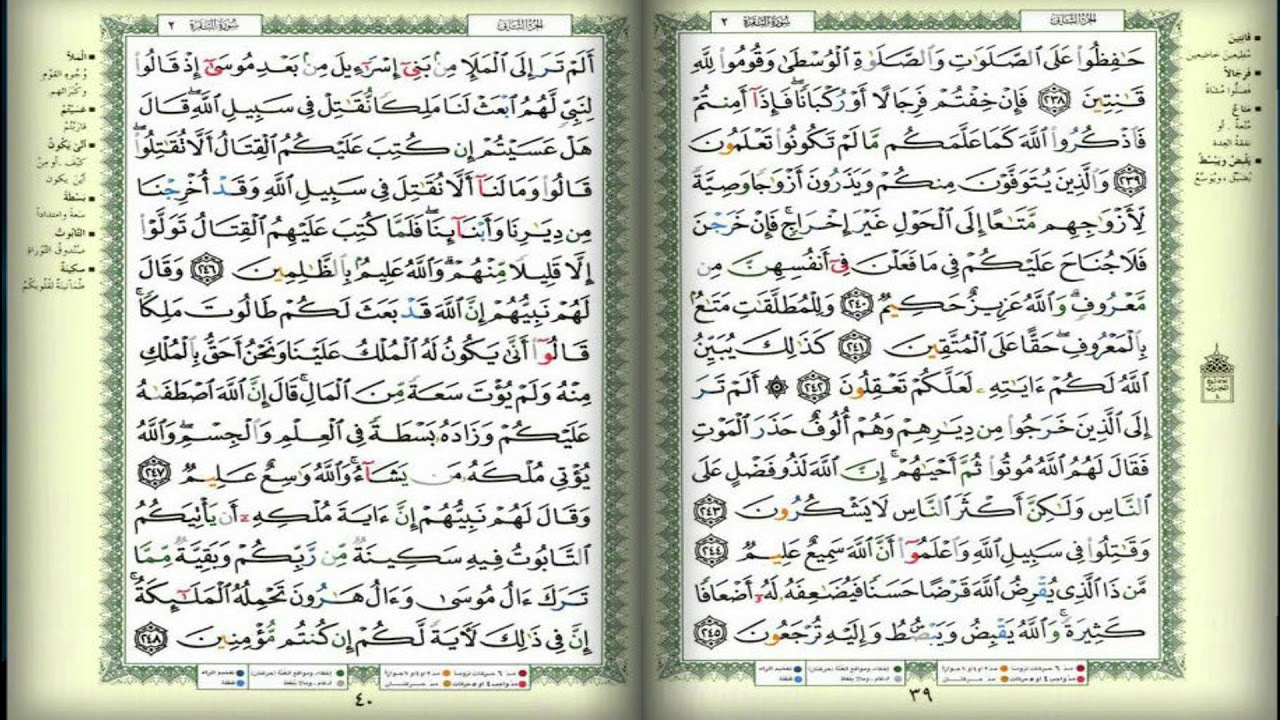 الجزء الثاني
سورة البقرة ٢
حَٰفِظُوا۟ عَلَى ٱلصَّلَوَٰتِ وَٱلصَّلَوٰةِ ٱلْوُسْطَىٰ وَقُومُوا۟ لِلَّهِ
قَٰنِتِينَ ٢٣٨ فَإِنْ خِفْتُمْ فَرِجَالًا أَوْ رُكْبَانًا ۖ فَإِذَآ أَمِنتُمْ
فَٱذْكُرُوا۟ ٱللَّهَ كَمَا عَلَّمَكُم مَّا لَمْ تَكُونُوا۟ تَعْلَمُونَ
٢٣٩ وَٱلَّذِينَ يُتَوَفَّوْنَ مِنكُمْ وَيَذَرُونَ أَزْوَٰجًا وَصِيَّةً
لِّأَزْوَٰجِهِم مَّتَٰعًا إِلَى ٱلْحَوْلِ غَيْرَ إِخْرَاجٍ ۚ فَإِنْ خَرَجْنَ
فَلَا جُنَاحَ عَلَيْكُمْ فِى مَا فَعَلْنَ فِىٓ أَنفُسِهِنَّ مِن
مَّعْرُوفٍ ۗ وَٱللَّهُ عَزِيزٌ حَكِيمٌ ٢٤٠ وَلِلْمُطَلَّقَٰتِ مَتَٰعٌۢ
بِٱلْمَعْرُوفِ ۖ حَقًّا عَلَى ٱلْمُتَّقِينَ ٢٤١ كَذَٰلِكَ يُبَيِّنُ
ٱللَّهُ لَكُمْ ءَايَٰتِهِۦ لَعَلَّكُمْ تَعْقِلُونَ ٢٤٢ ۞ أَلَمْ تَرَ
إِلَى ٱلَّذِينَ خَرَجُوا۟ مِن دِيَٰرِهِمْ وَهُمْ أُلُوفٌ حَذَرَ ٱلْمَوْتِ
فَقَالَ لَهُمُ ٱللَّهُ مُوتُوا۟ ثُمَّ أَحْيَٰهُمْ ۚ إِنَّ ٱللَّهَ لَذُو فَضْلٍ عَلَى
ٱلنَّاسِ وَلَٰكِنَّ أَكْثَرَ ٱلنَّاسِ لَا يَشْكُرُونَ ٢٤٣
وَقَٰتِلُوا۟ فِى سَبِيلِ ٱللَّهِ وَٱعْلَمُوٓا۟ أَنَّ ٱللَّهَ سَمِيعٌ عَلِيمٌ ٢٤٤
مَّن ذَا ٱلَّذِى يُقْرِضُ ٱللَّهَ قَرْضًا حَسَنًا فَيُضَٰعِفَهُۥ لَهُۥٓ أَضْعَافًا
كَثِيرَةً ۚ وَٱللَّهُ يَقْبِضُ وَيَبْصُۜطُ وَإِلَيْهِ تُرْجَعُونَ ٢٤٥
قانتين
مطيعين خاضعين
فرجالاً
فصلوا مشاة
متاع
متعة. أو
نفقة العدة
يقبض ويبسط
يضيق، ويوسع
٣٩
الجزء الثاني
سورة البقرة ٢
أَلَمْ تَرَ إِلَى ٱلْمَلَإِ مِنۢ بَنِىٓ إِسْرَٰٓءِيلَ مِنۢ بَعْدِ مُوسَىٰٓ إِذْ قَالُوا۟
لِنَبِىٍّ لَّهُمُ ٱبْعَثْ لَنَا مَلِكًا نُّقَٰتِلْ فِى سَبِيلِ ٱللَّهِ ۖ قَالَ
هَلْ عَسَيْتُمْ إِن كُتِبَ عَلَيْكُمُ ٱلْقِتَالُ أَلَّا تُقَٰتِلُوا۟ ۖ
قَالُوا۟ وَمَا لَنَآ أَلَّا نُقَٰتِلَ فِى سَبِيلِ ٱللَّهِ وَقَدْ أُخْرِجْنَا
مِن دِيَٰرِنَا وَأَبْنَآئِنَا ۖ فَلَمَّا كُتِبَ عَلَيْهِمُ ٱلْقِتَالُ تَوَلَّوْا۟
إِلَّا قَلِيلًا مِّنْهُمْ ۗ وَٱللَّهُ عَلِيمٌۢ بِٱلظَّٰلِمِينَ ٢٤٦ وَقَالَ
لَهُمْ نَبِيُّهُمْ إِنَّ ٱللَّهَ قَدْ بَعَثَ لَكُمْ طَالُوتَ مَلِكًا ۚ
قَالُوٓا۟ أَنَّىٰ يَكُونُ لَهُ ٱلْمُلْكُ عَلَيْنَا وَنَحْنُ أَحَقُّ بِٱلْمُلْكِ
مِنْهُ وَلَمْ يُؤْتَ سَعَةً مِّنَ ٱلْمَالِ ۚ قَالَ إِنَّ ٱللَّهَ ٱصْطَفَىٰهُ
عَلَيْكُمْ وَزَادَهُۥ بَسْطَةً فِى ٱلْعِلْمِ وَٱلْجِسْمِ ۖ وَٱللَّهُ
يُؤْتِى مُلْكَهُۥ مَن يَشَآءُ ۚ وَٱللَّهُ وَٰسِعٌ عَلِيمٌ ٢٤٧
وَقَالَ لَهُمْ نَبِيُّهُمْ إِنَّ ءَايَةَ مُلْكِهِۦٓ أَن يَأْتِيَكُمُ
ٱلتَّابُوتُ فِيهِ سَكِينَةٌ مِّن رَّبِّكُمْ وَبَقِيَّةٌ مِّمَّا
تَرَكَ ءَالُ مُوسَىٰ وَءَالُ هَٰرُونَ تَحْمِلُهُ ٱلْمَلَٰٓئِكَةُ ۚ
إِنَّ فِى ذَٰلِكَ لَءَايَةً لَّكُمْ إِن كُنتُم مُّؤْمِنِينَ ٢٤٨
الملأ
وجوه القوم
وكبرائهم
عسيتم
قاربتم
أنى يكون
كيف، أو من
أين يكون
بسطة
سعة وامتداداً
التابوت
صندوق التوراة
سكينة
طمأنينة لقلوبكم
٤٠